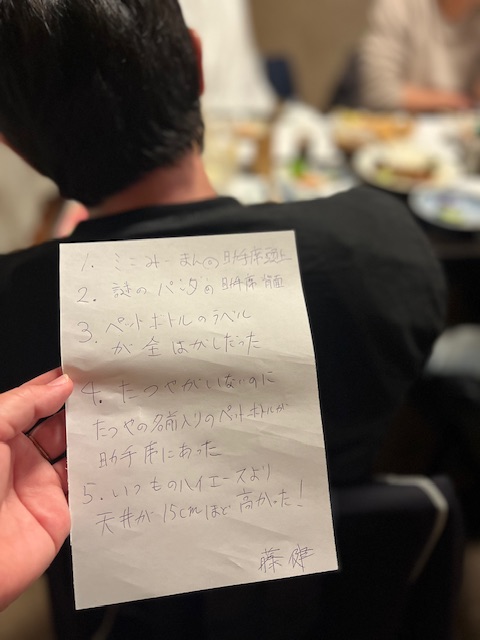 1. ミニみーまんの助手席頭上
2. 謎のパンダの助手席背面
3. ペットボトルのラベル
が全はがしだった
4. たつやがいないのに
たつやの名前入りのペットボトルが
助手席にあった
5. いつものハイエースより
天井が15cmほど高かった!
藤健